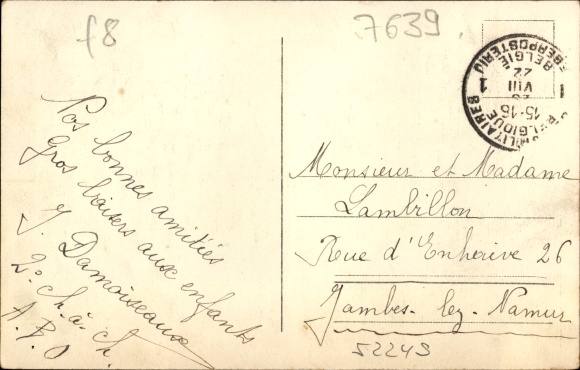 f8
7639
POSTES MILITAIRES
BELGIQUE
15-16
VIII
22
1 1
BELGIË
Nos bonnes amitiés
Gros baisers aux enfants
J. Damoiseaux
2e ch. à. ch.
A. P. O
Monsieur et Madame
Lambillon
Rue d'Enherive 26
Jambes-lez-Namur
52243